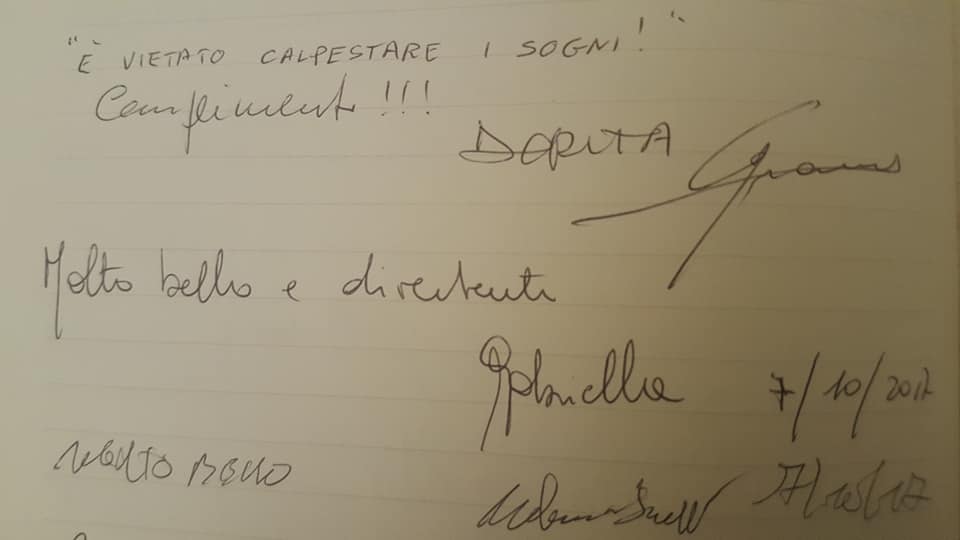 "È VIETATO CALPESTARE I SOGNI!"
Complimenti!!!
DORITA
Molto bello e divertente
Gabriella 7/10/2017
MOLTO BELLO
7/10/17